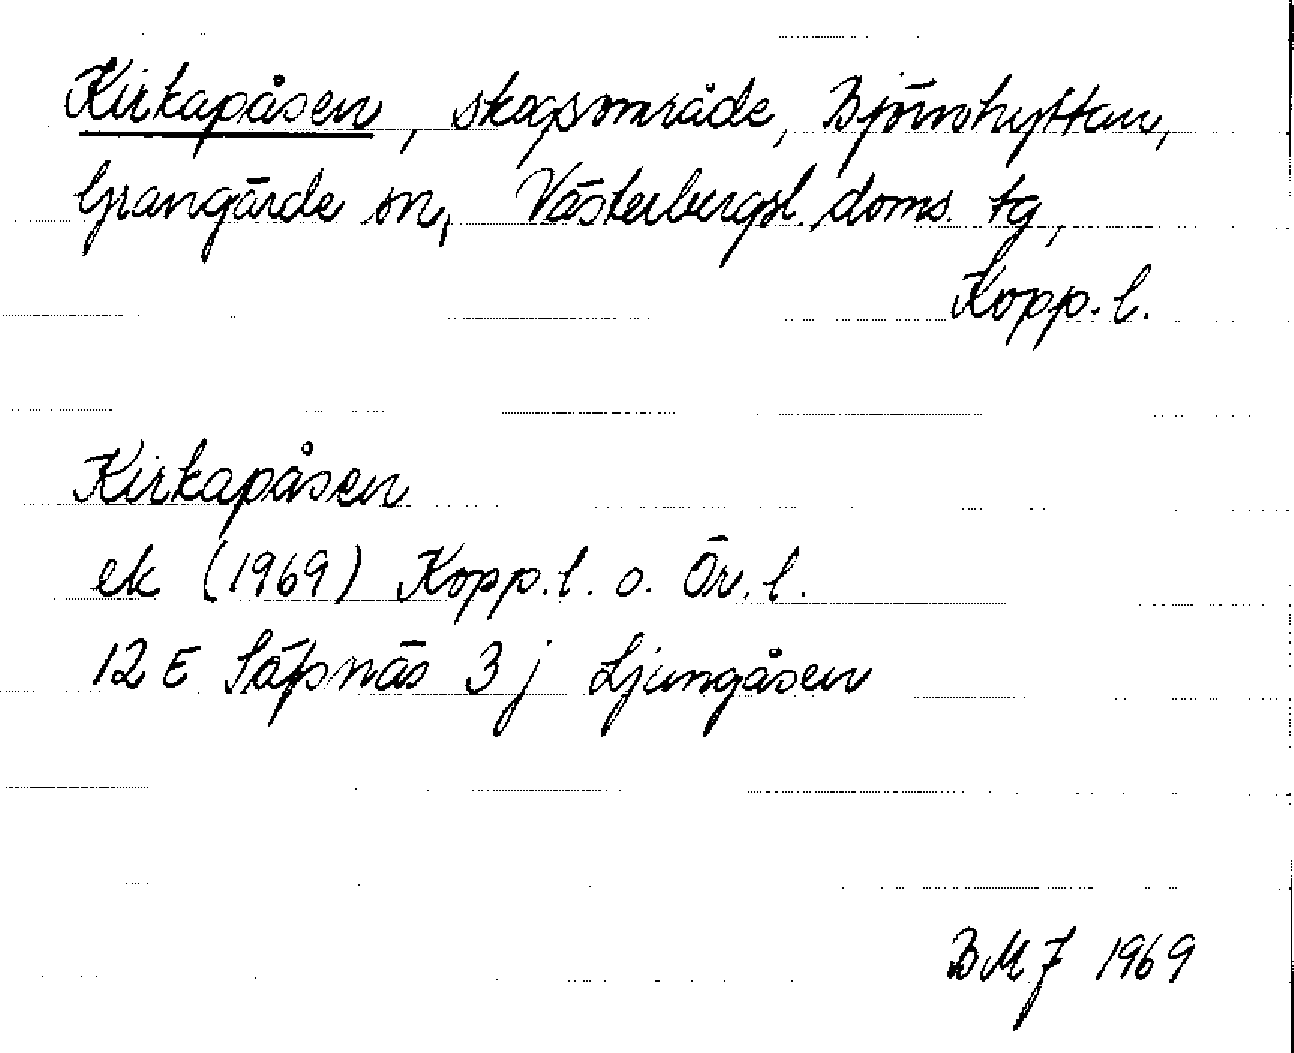 Kirkapåsen, skogsområde, Björnshyttan,
Grangärde sn, Västerbergsl. doms. tg,
Kopp. l.
Kirkapåsen
ek (1969) Kopp. l. o. Ör. l.
12 E Säfsnäs 3 j Ljungåsen
BMJ 1969